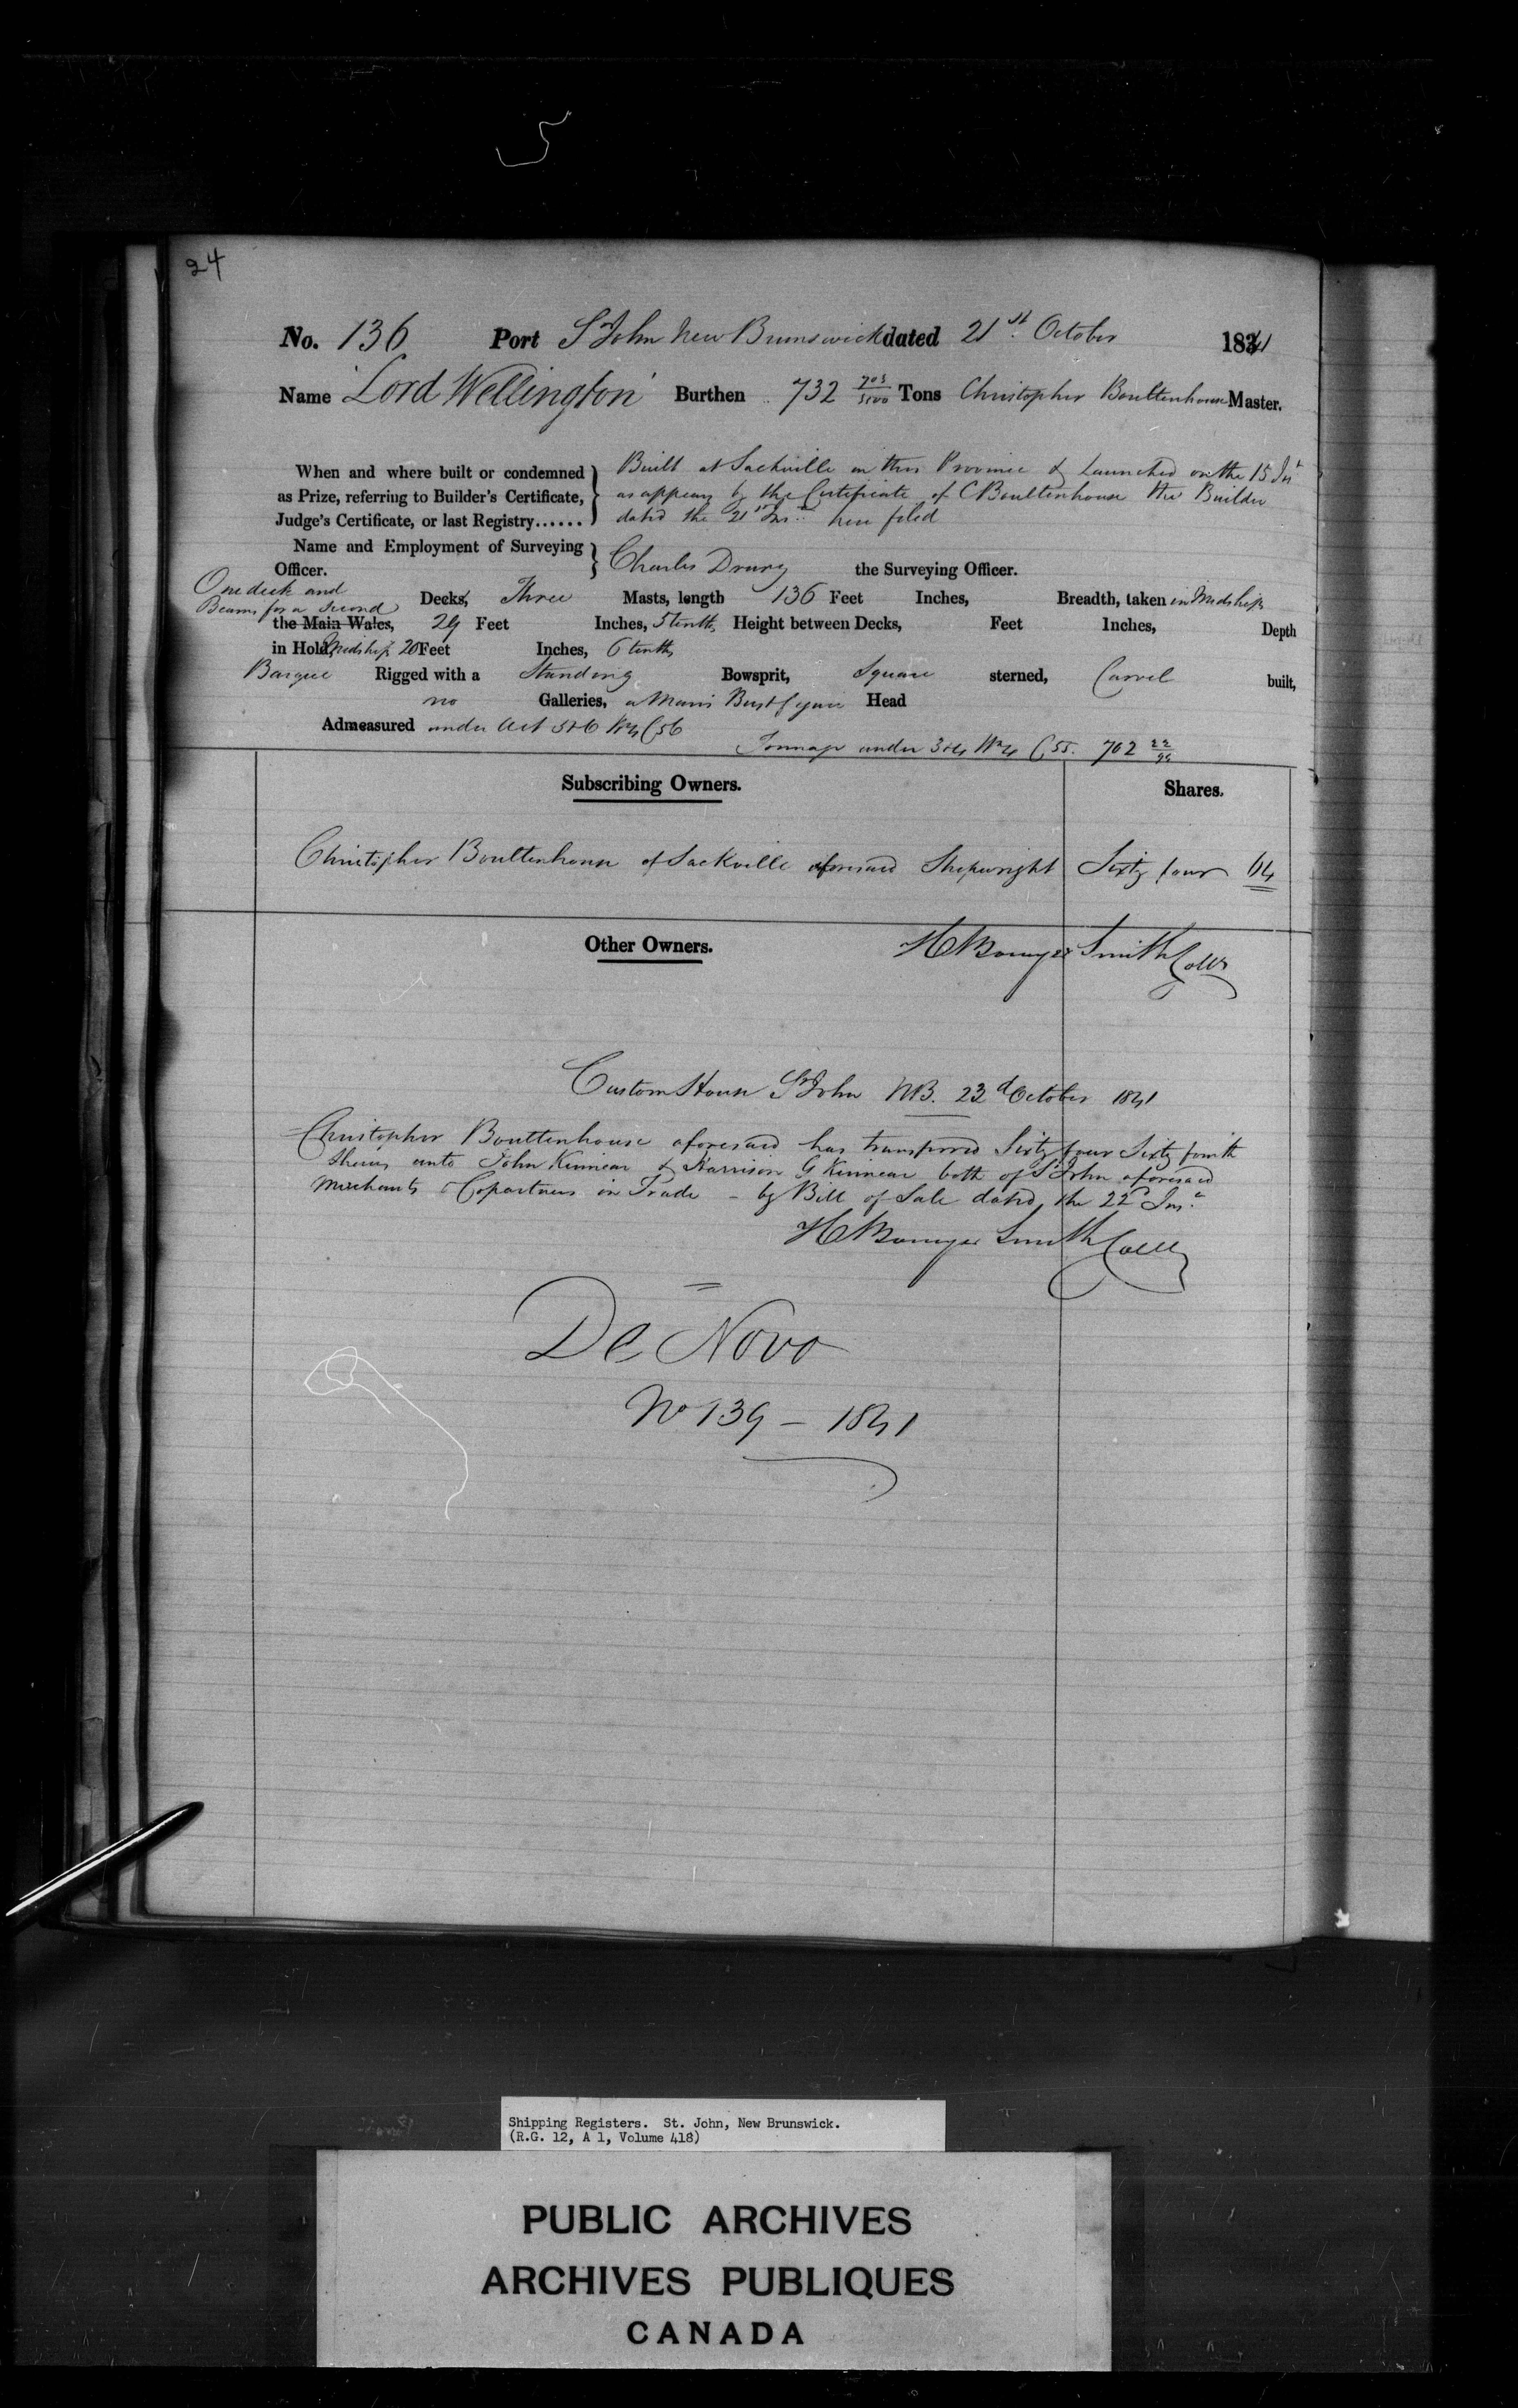 5
24
No. 136 Port St John New Brunswick dated 21st October 1841
Name 'Lord Wellington' Burthen 732 Tons Christopher Boultenhouse Master.
When and where built or condemned as Prize, referring to Builder's Certificate, Judge's Certificate, or last Registry......
Built at Sackville in this Province & Launched on the 15 Inst
as appears by the Certificate of C Boultenhouse the Builder
dated the 21st Inst here filed
Name and Employment of Surveying Officer. Charles Drury the Surveying Officer.
One deck and
Beams for a Second Decks, Three Masts, length 136 Feet Inches, Breadth, taken in Midships
the Main Wales, 29 Feet Inches, 5 tenths Height between Decks, Feet Inches, Depth
in Hold, Midships 20 Feet Inches, 6 tenths
Barque Rigged with a Standing Bowsprit, Square sterned, Carvel built,
no Galleries, a Man's Bust figure Head
Admeasured under Act 5&6 Wm 4 C 56
Tonnage under 3&4 Wm 4 C 55. 762 22/94
Subscribing Owners. Shares.
Christopher Boultenhouse of Sackville aforesaid Shipwright Sixty four 64
Other Owners. H Bowyer Smith Collr
Custom House St John NB. 23d October 1841
Christopher Boultenhouse aforesaid has transferred Sixty four Sixty fourth
Shares unto John Kinnear & Harrison G Kinnear both of St John aforesaid
Merchants & Copartners in Trade - by Bill of Sale dated the 22d Inst
H Bowyer Smith Collr
De Novo
No 139 - 1841
Shipping Registers. St. John, New Brunswick.
(R.G. 12, A 1, Volume 418)
PUBLIC ARCHIVES
ARCHIVES PUBLIQUES
CANADA